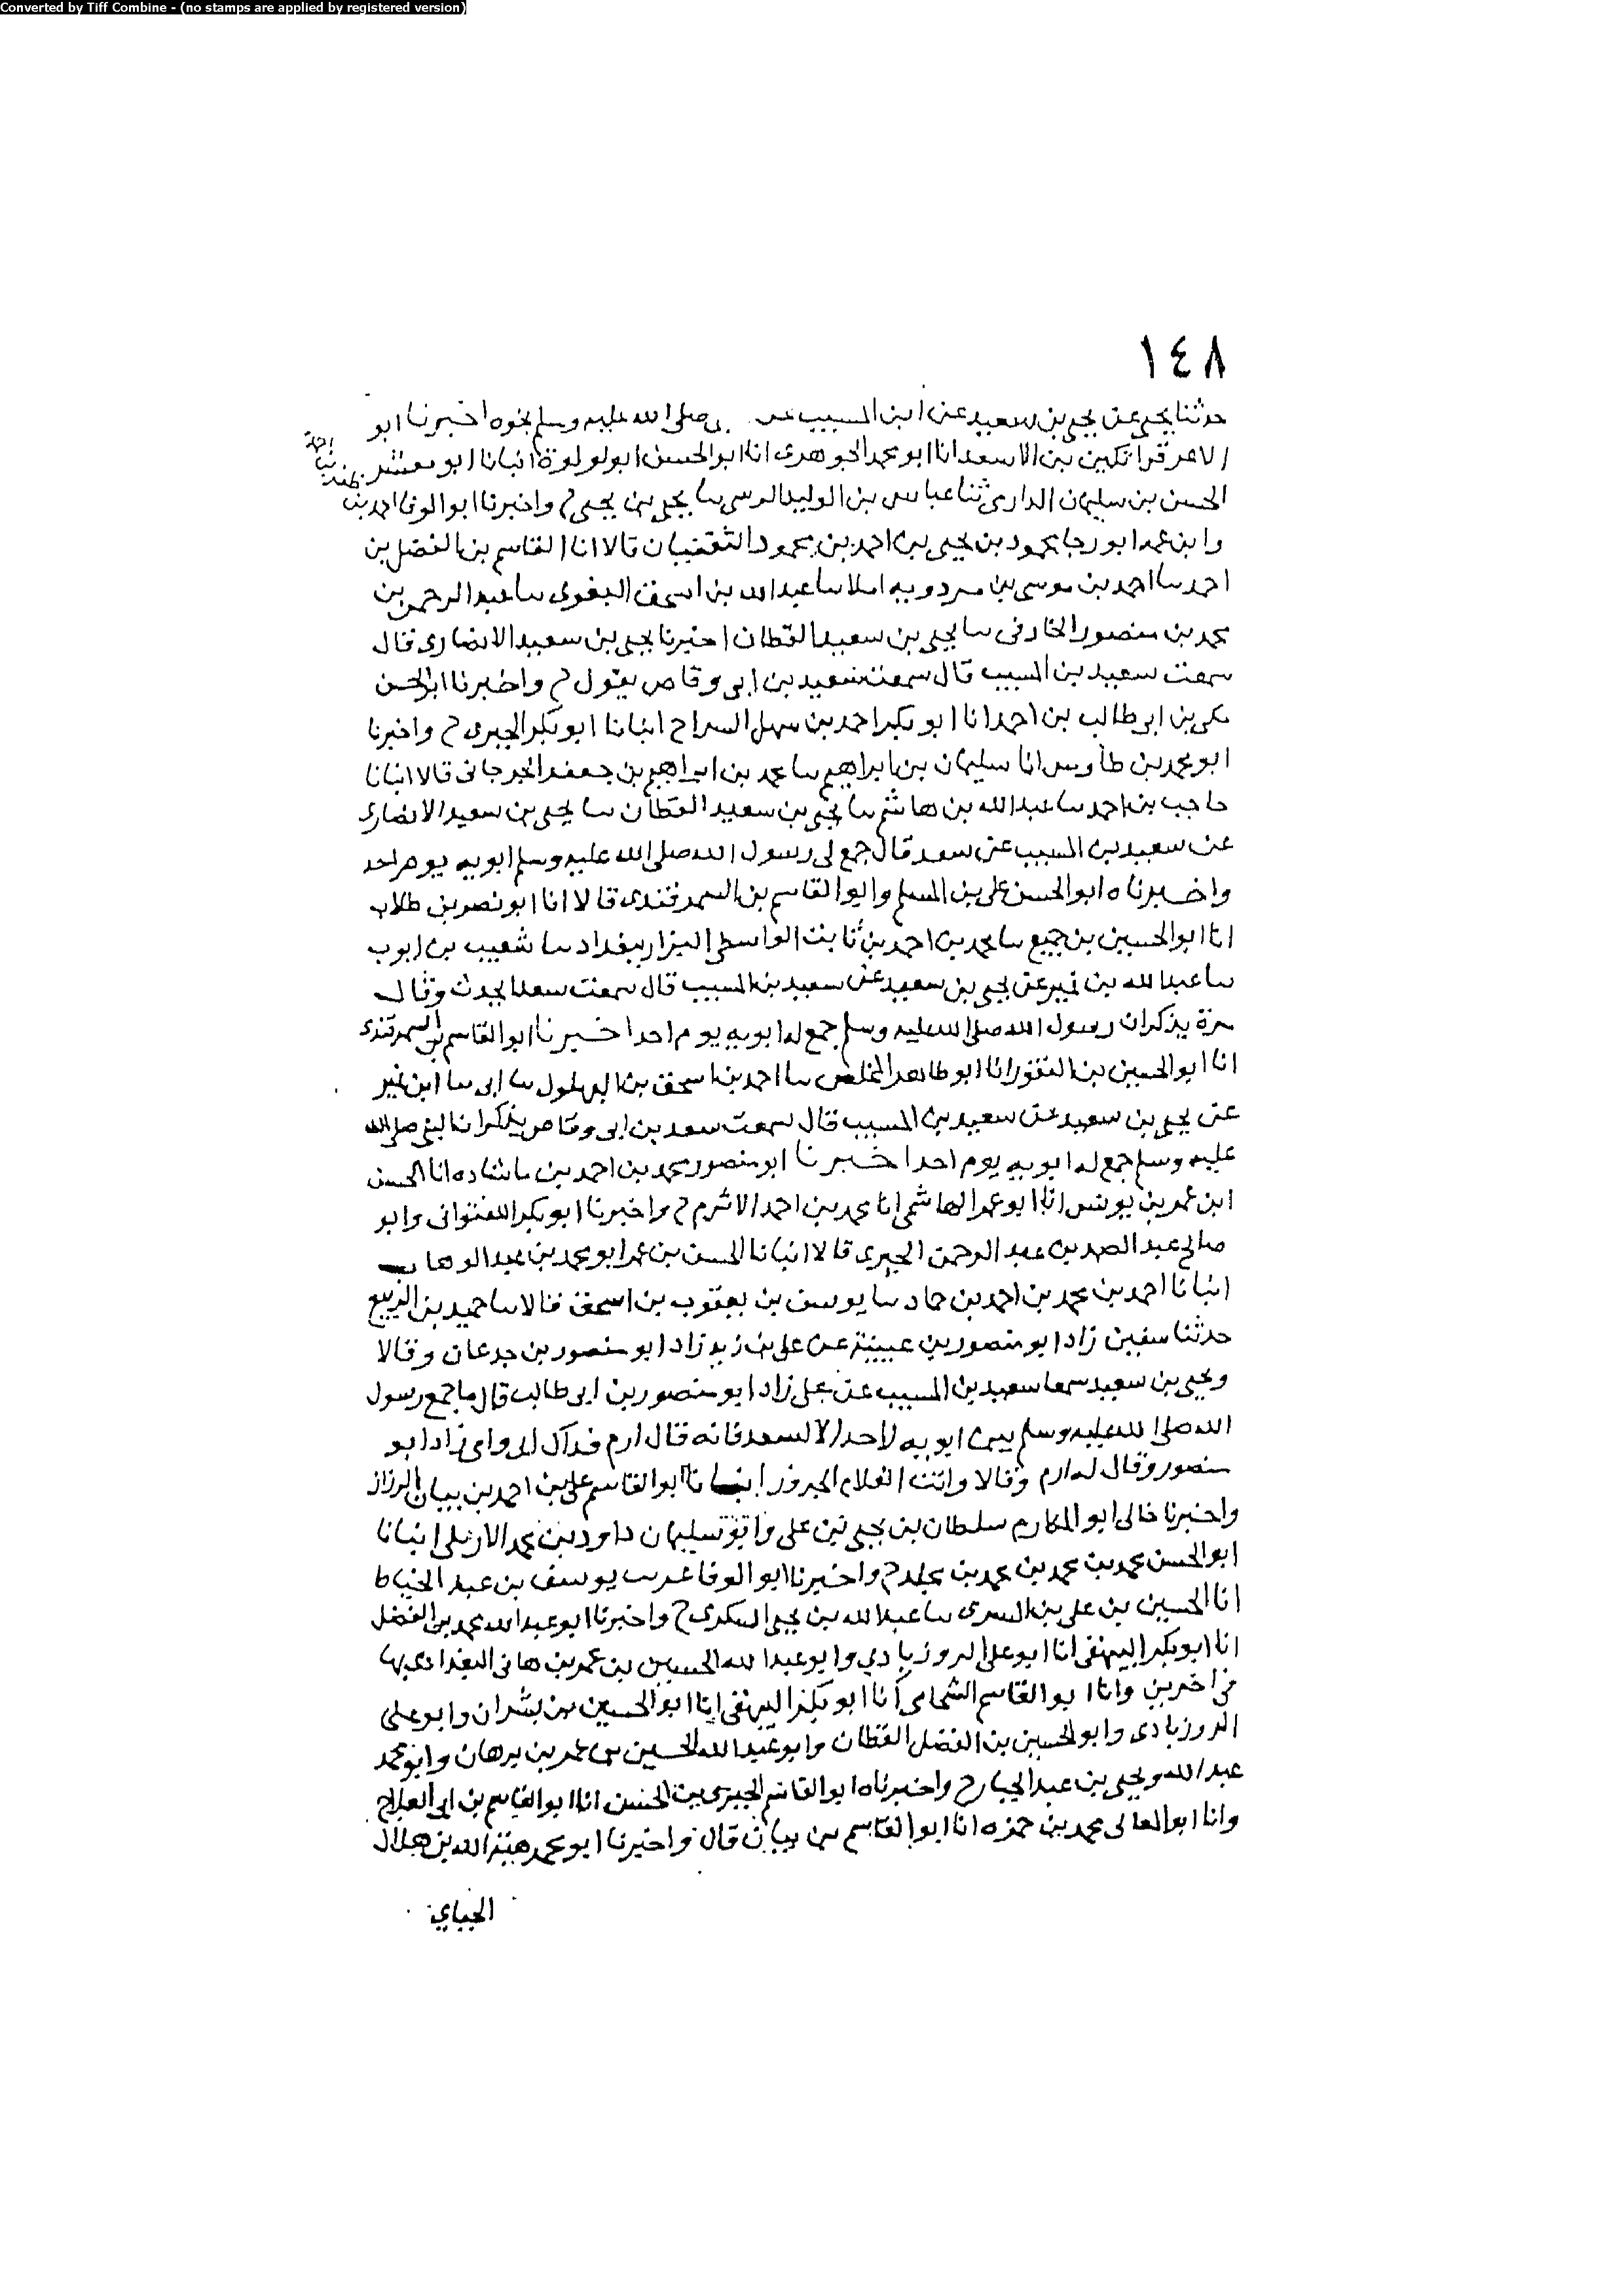 Converted by Tiff Combine - (no stamps are applied by registered version)
١٤٨
حدثنا يحيى عن يحيى بن سعيد عن ابن المسيب عن صلى الله عليه وسلم بنحوه اخبرنا ابو
الاعز قراتكين بن الاسعد انا ابو محمد الجوهري انا ابو الحسن ابو لولوة انبانا ابو معشر
الحسن بن سليمان الدارى ثنا عباس بن الوليد الرسى سا يحيى بن يحيى ح واخبرنا ابو الوفا احمد بن
وابن عمه ابو رجا محمود بن يحيى بن احمد بن محمود الثقفيان قالا انا القاسم بن الفضل بن
احمد سا احمد بن موسى بن مردويه املا سا عبد الله بن اسحق البغوى سا عبد الرحمن بن
محمد بن منصور الحارثى سا يحيى بن سعيد القطان اخبرنا يحيى بن سعيد الانصارى قال
سمعت سعيد بن المسيب قال سمعت سعيد بن ابى وقاص يقول ح واخبرنا ابو الحسن
مكى بن ابى طالب بن احمد انا ابو بكر احمد بن سهل السراج انبانا ابو بكر الحيرى ح واخبرنا
ابو محمد بن طاوس انا سليمان بن ابراهيم سا محمد بن ابراهيم بن جعفر الجرجانى قالا انبانا
حاجب بن احمد سا عبد الله بن هاشم سا يحيى بن سعيد القطان سا يحيى بن سعيد الانصارى
عن سعيد بن المسيب عن سعد قال جمع لى رسول الله صلى الله عليه وسلم ابويه يوم احد
واخبرناه ابو الحسن على بن المسلم وابو القاسم بن السمرقندى قالا انا ابو نصر بن طلاب
انا ابو الحسين بن جميع سا محمد بن احمد بن ثابت الواسطى البزار ببغداد سا شعيب بن ايوب
سا عبد الله بن نمير عن يحيى بن سعيد عن سعيد بن المسيب قال سمعت سعدا يحدث وقال
مرة يذكر ان رسول الله صلى الله عليه وسلم جمع له ابويه يوم احد اخبرنا ابو القاسم بن السمرقندى
انا ابو الحسين بن النقور انا ابو طاهر المخلص سا احمد بن اسحق بن البهلول سا ابى سا ابن نمير
عن يحيى بن سعيد عن سعيد بن المسيب قال سمعت سعد بن ابى وقاص يذكر ان النبى صلى الله
عليه وسلم جمع له ابويه يوم احد اخبرنا ابو منصور محمد بن احمد بن ماشاده انا الحسن
ابن عمر بن يونس انا ابو عمر الهاشمى انا محمد بن احمد الاثرم ح واخبرنا ابو بكر اللفتوانى وابو
صالح عبد الصمد بن عبد الرحمن الحيرى قالا انبانا الحسن بن عمر ابو محمد بن عبد الوهاب
انبانا احمد بن محمد بن احمد بن حماد سا يوسف بن يعقوب بن اسحق قالا سا حميد بن الربيع
حدثنا سفين زاد ابو منصور بن عيينة عن على بن زيد زاد ابو منصور بن جدعان وقالا
ويحيى بن سعيد سمعا سعيد بن المسيب عن على زاد ابو منصور بن ابى طالب قال ما جمع رسول
الله صلى الله عليه وسلم بين ابويه لاحد الا لسعد فانه قال ارم فداك ابى وامى زاد ابو
منصور وقال له ارم وقالا وانت الغلام الحزور انبانا ابو القاسم على بن احمد بن بيان الرزاز
واخبرنا خالى ابو المكارم سلطان بن يحيى بن على سليمان داود بن محمد الاربلى انبانا
ابو الحسن محمد بن محمد بن محمد بن مخلد ح واخبرنا ابو الوفا عمر يوسف بن عبد الخياط
انا الحسين بن على بن السرى سا عبد الله بن يحيى السكرى ح واخبرنا ابو عبد الله محمد بن الفضل
انا ابو بكر البيهقى انا ابو على الروذبادي وابو عبد الله الحسين بن عمر بن هانى البغدادى بها
فى اخرين وانا ابو القاسم الشحامى أنا ابو بكر البيهقى انا ابو الحسين بن بشران وابو على
الروزبادى وابو الحسين بن الفضل القطان وابو عبد الله الحسين بن عمر بن برهان وابو محمد
عبد الله ويحيى بن عبد الجبار ح واخبرناه ابو القاسم الجيزى بن الحسن انا ابو القاسم بن ابى العلاج
وانا ابو المعالى محمد بن حمزه انا ابو القاسم بن بيان قال واخبرنا ابو محمد هبة الله بن هلال
الجباي